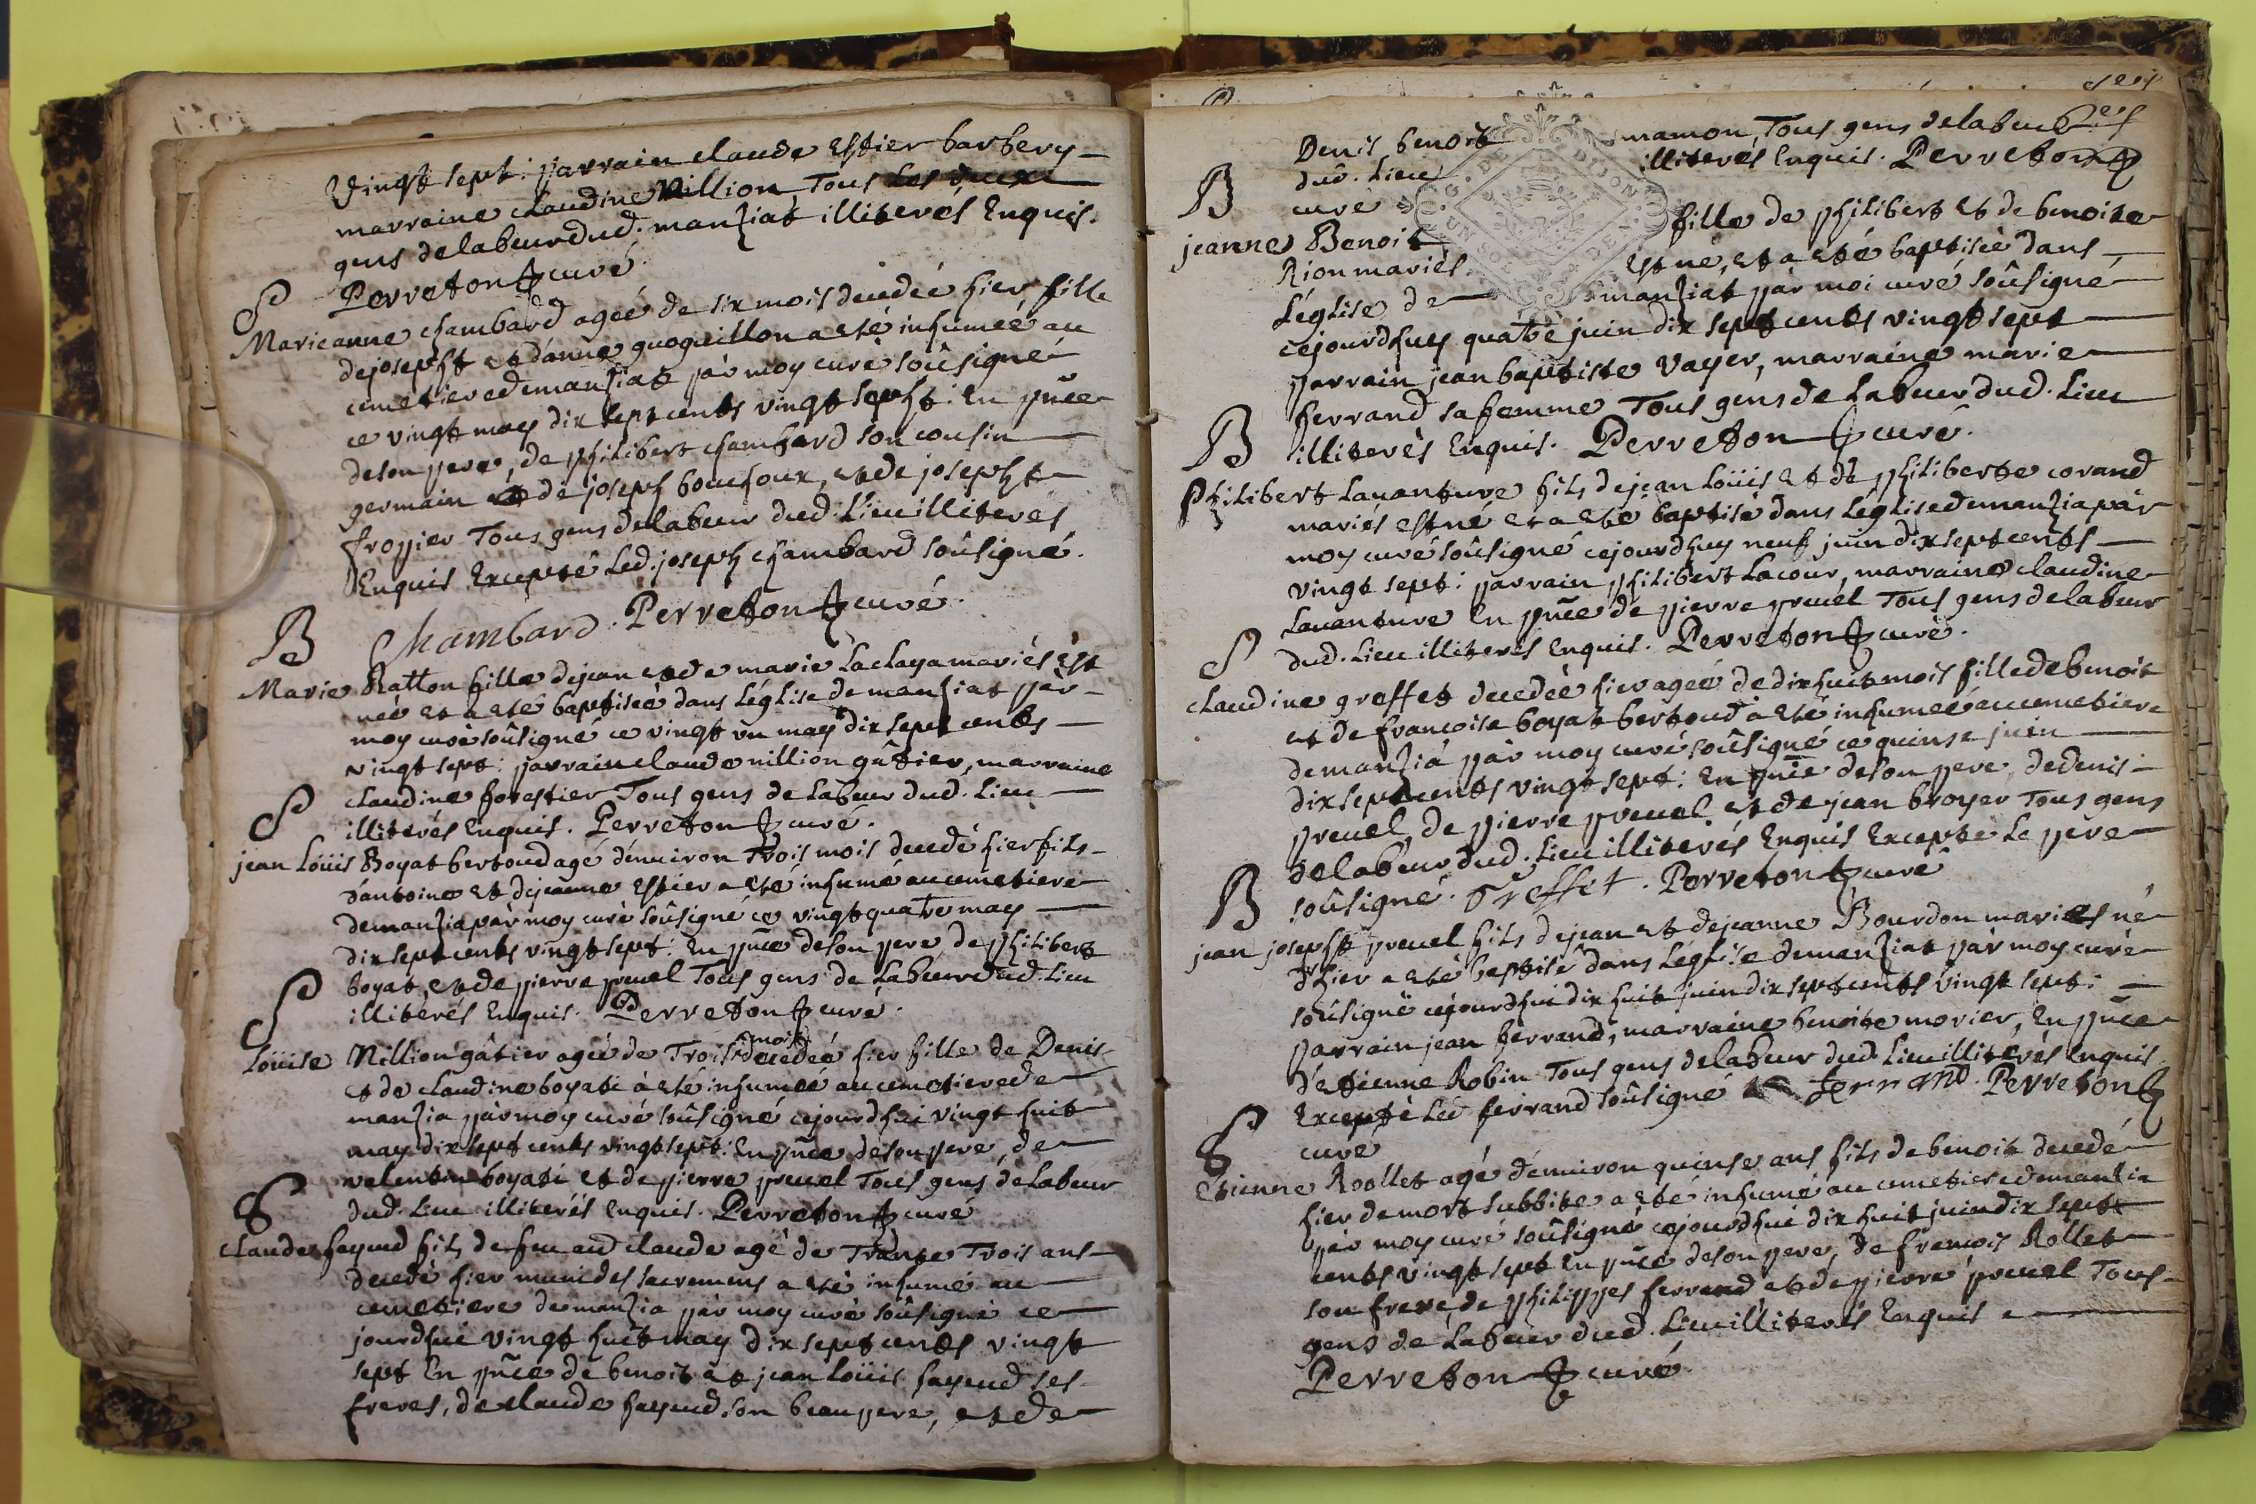 vingt sept: parrain claude Estier barbery
marraine claudine Nillion Tous
gens delabeur dud. manziat illiterés Enquis.
Perreton curé
S
Marieanne chambard ageé de six mois decedeé hier fille
dejosepht et d'anne guoguillon a eté inhumeé au
cemetiere demanziat par moy curé soûsigné
ce vingt may dix sept cents vingt sept: En pn͂ce
deson pere, de philibert chambard son cousin
germain et de joseph bouchoux, et de josepht
fropier Tous gens delabeur dud. Lieu illiterés
Enquis Excepté Led. joseph chambard soûsigné.
Chambard. Perreton curé.
B
Marie Ratton fille dejean et de marie Laclaya mariés est
neé et a eté baptiseé dans Léglise de manziat par
moy curé soûsigné ce vingt un may dix sept cents
vingt sept: parrain claude nillion gâtier, marraine
claudine forestier Tous gens de Labeur dud. Lieu
illiterés Enquis. Perreton curé.
S
jean Loüis Boyat bertoud agé d'enuiron Trois mois decedé hier fils
d'antoine et dejeanne Estier a eté inhumé au cemetiere
demanzia par moy curé soûsigné ce vingt quatre may
dix sept cents vingt sept: En pn͂ce deson pere de philibert
boyat, et de pierre preuel Tous gens de Labeur dud. Lieu
illiterés Enquis. Perreton curé.
S
Loüise Nillion gâtier ageé de Trois mois decedeé hier fille de Denis
et de claudine boyati a eté inhumeé au cemetiere de
manzia par moy curé soûsigné cejourdhui vingt huit
may dix sept cents vingt sept: En pn͂ce deson pere, de
valentin boyati et de pierre preuel Tous gens de Labeur
dud. Lieu illiterés Enquis. Perreton curé
S
claude fayeud fils de feu claude agé de Trante Trois ans
decedé hier muni des sacremens a eté inhumé au
cemetiere demanzia par moy curé soûsigné ce
jourdhui vingt huit may dix sept cents vingt
sept En pn͂ce de benoit et jean Loüis fayeud ses
freres, de claude fayeud son beau pere, et de
Denis benoit mamon Tous gens delabeur
dud. Lieu illiterés Enquis. Perreton
curé
B
jeanne Benoit fille de philibert et de benoite
Rion mariés. Est né, et a eté baptiseé dans
Léglise de manziat par moi curé soûsigné
cejourdhuy quatre juin dix sept cents vingt sept
parrain jean baptiste vayer, marraine marie
ferrand sa femme Tous gens de Labeur dud. Lieu
illiterés Enquis. Perreton curé.
B
Philibert Lauanture fils dejean Loüis et de philiberte corand
mariés est né et a eté baptisé dans Léglise demanzia par
moy curé soûsigné cejourdhuy neuf juin dix sept cents
vingt sept: parrain philibert Lacour, marraine claudine
Lauanture En pn͂ce de pierre preuel Tous gens delabeur
dud. Lieu illiterés Enquis. Perreton curé.
S
claudine greffet decedeé hier ageé de dix huit mois fille de benoit
et de francoise boyat bertoud a eté inhumeé au cemetiere
demanzia par moy curé soûsigné ce quinse juin
dix sept cents vingt sept: En pn͂ce deson pere, dedenis
preuel, de pierre preuel et de jean broyer Tous gens
delabeur dud. Lieu illiterés Enquis Excepté Le pere
soûsigné. Greffet. Perreton curé
B
jean josepht preuel fils dejean et dejeanne Bourdon mariés né
d'hier a eté baptisé dans Léglise demanziat par moy curé
soûsigné cejourdhui dix huit juin dix sept cents vingt sept:
parrain jean ferrand, marraine benoite morier, En pn͂ce
d'etienne Robin Tous gens delabeur dud. Lieu illiterés Enquis
Excepté Led ferrand soûsigné ferrand. Perreton
curé
S
Etienne Roollet agé d'enuiron quinse ans fils de benoit decedé
hier de mort subbite a eté inhumé au cemetiere demanzia
par moy curé soûsigné cejourdhui dix huit juin dix sept
cents vingt sept En pn͂ce deson pere, de francois Rollet
son frere, de philippes ferrand et de pierre preuel Tous
gens de Labeur dud. Lieu illiterés Enquis
Perreton curé.